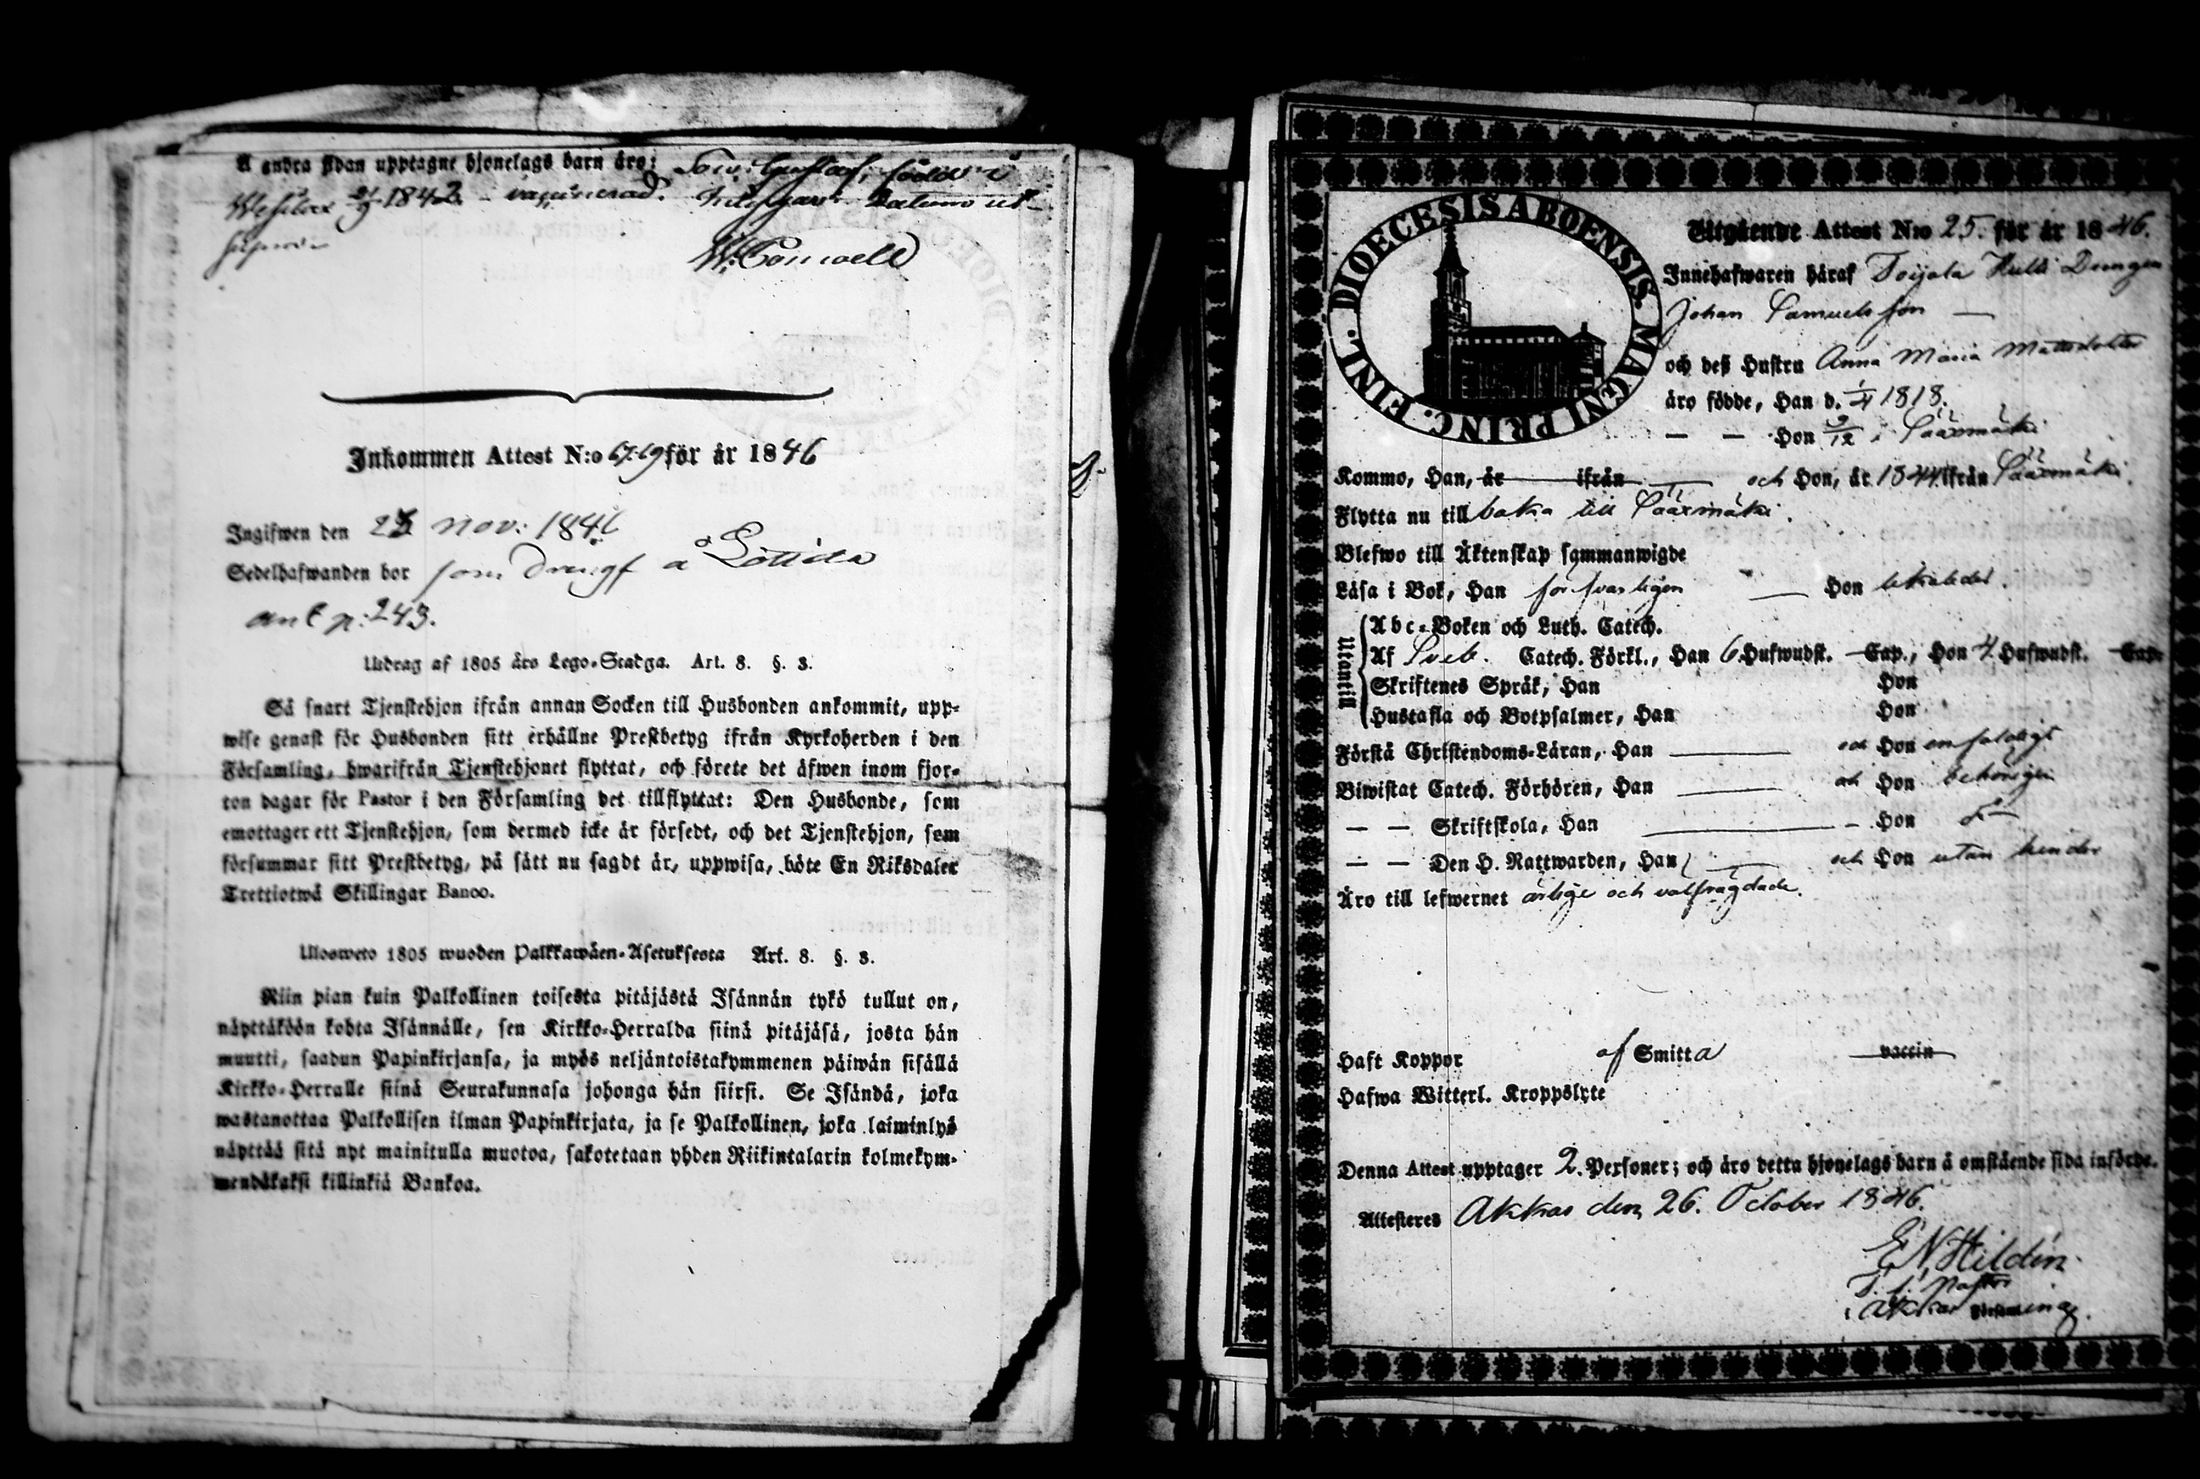 Å andra sidan upptagne hjonelags barn äro: Son Gustaf, född i
21/9 1842 - vaccinerad. Datum ut-
supra
Inkommen Attest N:o 67-69 för år 1846
Ingifwen den 23 nov: 1846
Sedelhafwanden bor som Dräng på
ant p: 243.
Utdrag af 1805 års Lego-Stadga. Art. 8. §. 3.
Så snart Tjenstehjon ifrån annan Socken till Husbonden ankommit, upp-
wise genast för Husbonden sitt erhållne Prestbetyg ifrån Kyrkoherden i den
Församling, hwarifrån Tjenstehjonet flyttat, och förete det äfwen inom fjor-
ton dagar för Pastor i den Församling det tillflyttat: Den Husbonde, som
emottager ett Tjenstehjon, som dermed icke är försedt, och det Tjenstehjon, som
försummar sitt Prestbetyg, på sätt nu sagdt är, uppwisa, böte En Riksdaler
Trettiotwå Skillingar Banco.
Uloswето 1805 wuoden Palkkawäen-Asetuksesta Art. 8. §. 3.
Niin pian kuin Palkollinen toisesta pitäjästä Isännän tykö tullut on,
näyttäköön kohta Isännälle, sen Kirkko-Herralda siinä pitäjäsä, josta hän
muutti, saadun Papinkirjansa, ja myös neljäntoistakymmenen päiwän sisällä
Kirkko-Herralle siinä Seurakunnasa johonga hän siirsi. Se Isändä, joka
wastanottaa Palkollisen ilman Papinkirjata, ja se Palkollinen, joka laiminlyö
näyttää sitä nyt mainitulla muotoa, sakotetaan yhden Riikintalarin kolmekym-
mendäkaksi killinkiä Bankoa.
DIOECESIS ABOENSIS. MAGNI PRINC. FINL.
Utgående Attest N:o 25. för år 1846.
Innehafwaren häraf Toijola Drängen
Johan Samuelsson
och deß Hustru Anna Maria Mattsdotter
äro födde, Han d. 1/4 1818.
— — Hon 9/12 i Sääxmäki
Kommo, Han, år ifrån — och Hon, år 1844 ifrån Sääxmäki.
Flytta nu till baka till Sääxmäki.
Blefwo till Äktenskap sammanwigde
Läsa i Bok, Han försvarligen — Hon
Utantill
Abc-Boken och Luth. Catech.
Af Sveb. Catech. Förkl., Han 6 Hufwudst. Cap., Hon 4 Hufwudst. Cap.
Skriftenes Språk, Han Hon
Hustafla och Botpsalmer, Han Hon
Förstå Christendoms-Läran, Han — och Hon enfaldigt
Biwistat Catech. Förhören, Han — och Hon behörigen
— — Skriftskola, Han — Hon
— — Den H. Nattwarden, Han — och Hon utan hinder
Äro till lefwernet ärlige och välfrägdade.
Haft Koppor af Smitta vaccin
Hafwa Witterl. Kroppslyte
Denna Attest upptager 2. Personer; och äro detta hjonelags barn å omstående sida införde.
Attesteres Akkas den 26. October 1846.
E N Hildén.
T. f. Pastor
i Akkas Församling.